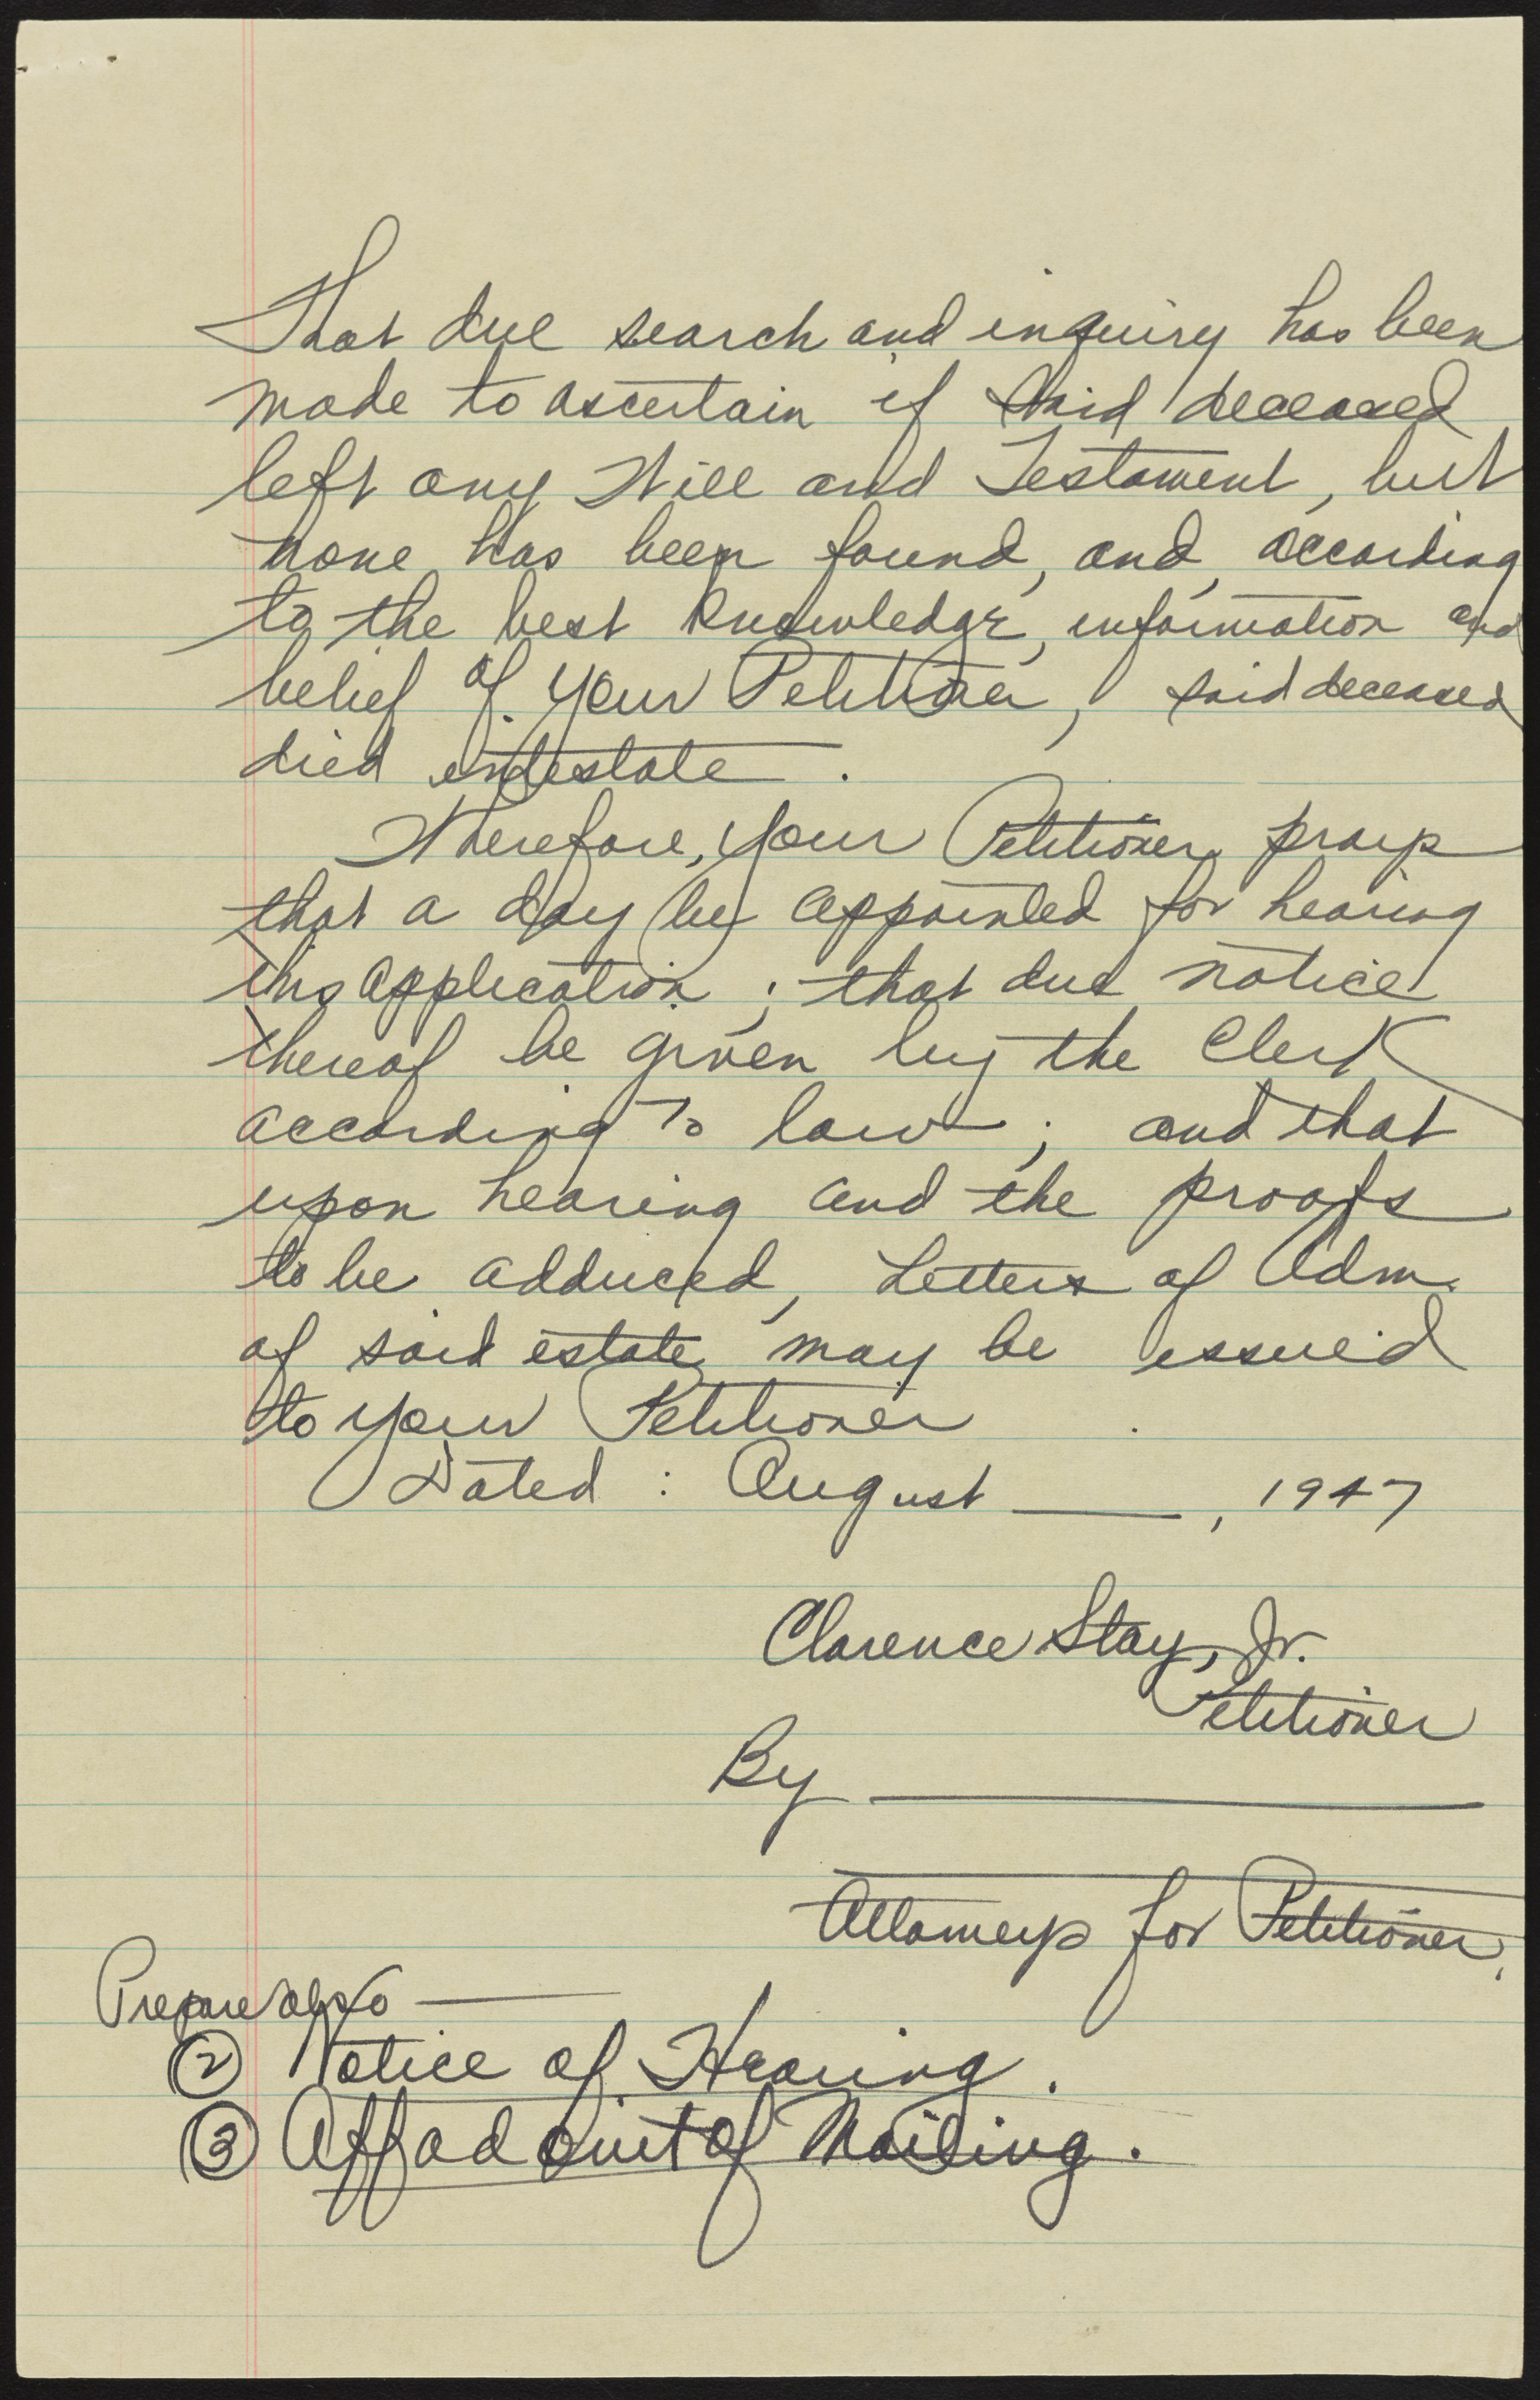 That due search and inquiry has been
made to ascertain if said deceased
left any Will and Testament, but
none has been found, and, according
to the best knowledge, information and
belief of your Petitioner, said deceased
died intestate.
Wherefore, your Petitioner prays
that a day be appointed for hearing
this application; that due notice
thereof be given by the Clerk
according to law; and that
upon hearing and the proofs
to be adduced, Letters of Adm.
of said estate may be issued
to your Petitioner.
Dated: August ____, 1947
Clarence Stay, Jr.
Petitioner
By ____
Attorneys for Petitioner.
Prepare also —
② Notice of Hearing.
③ Affadavit of Mailing.